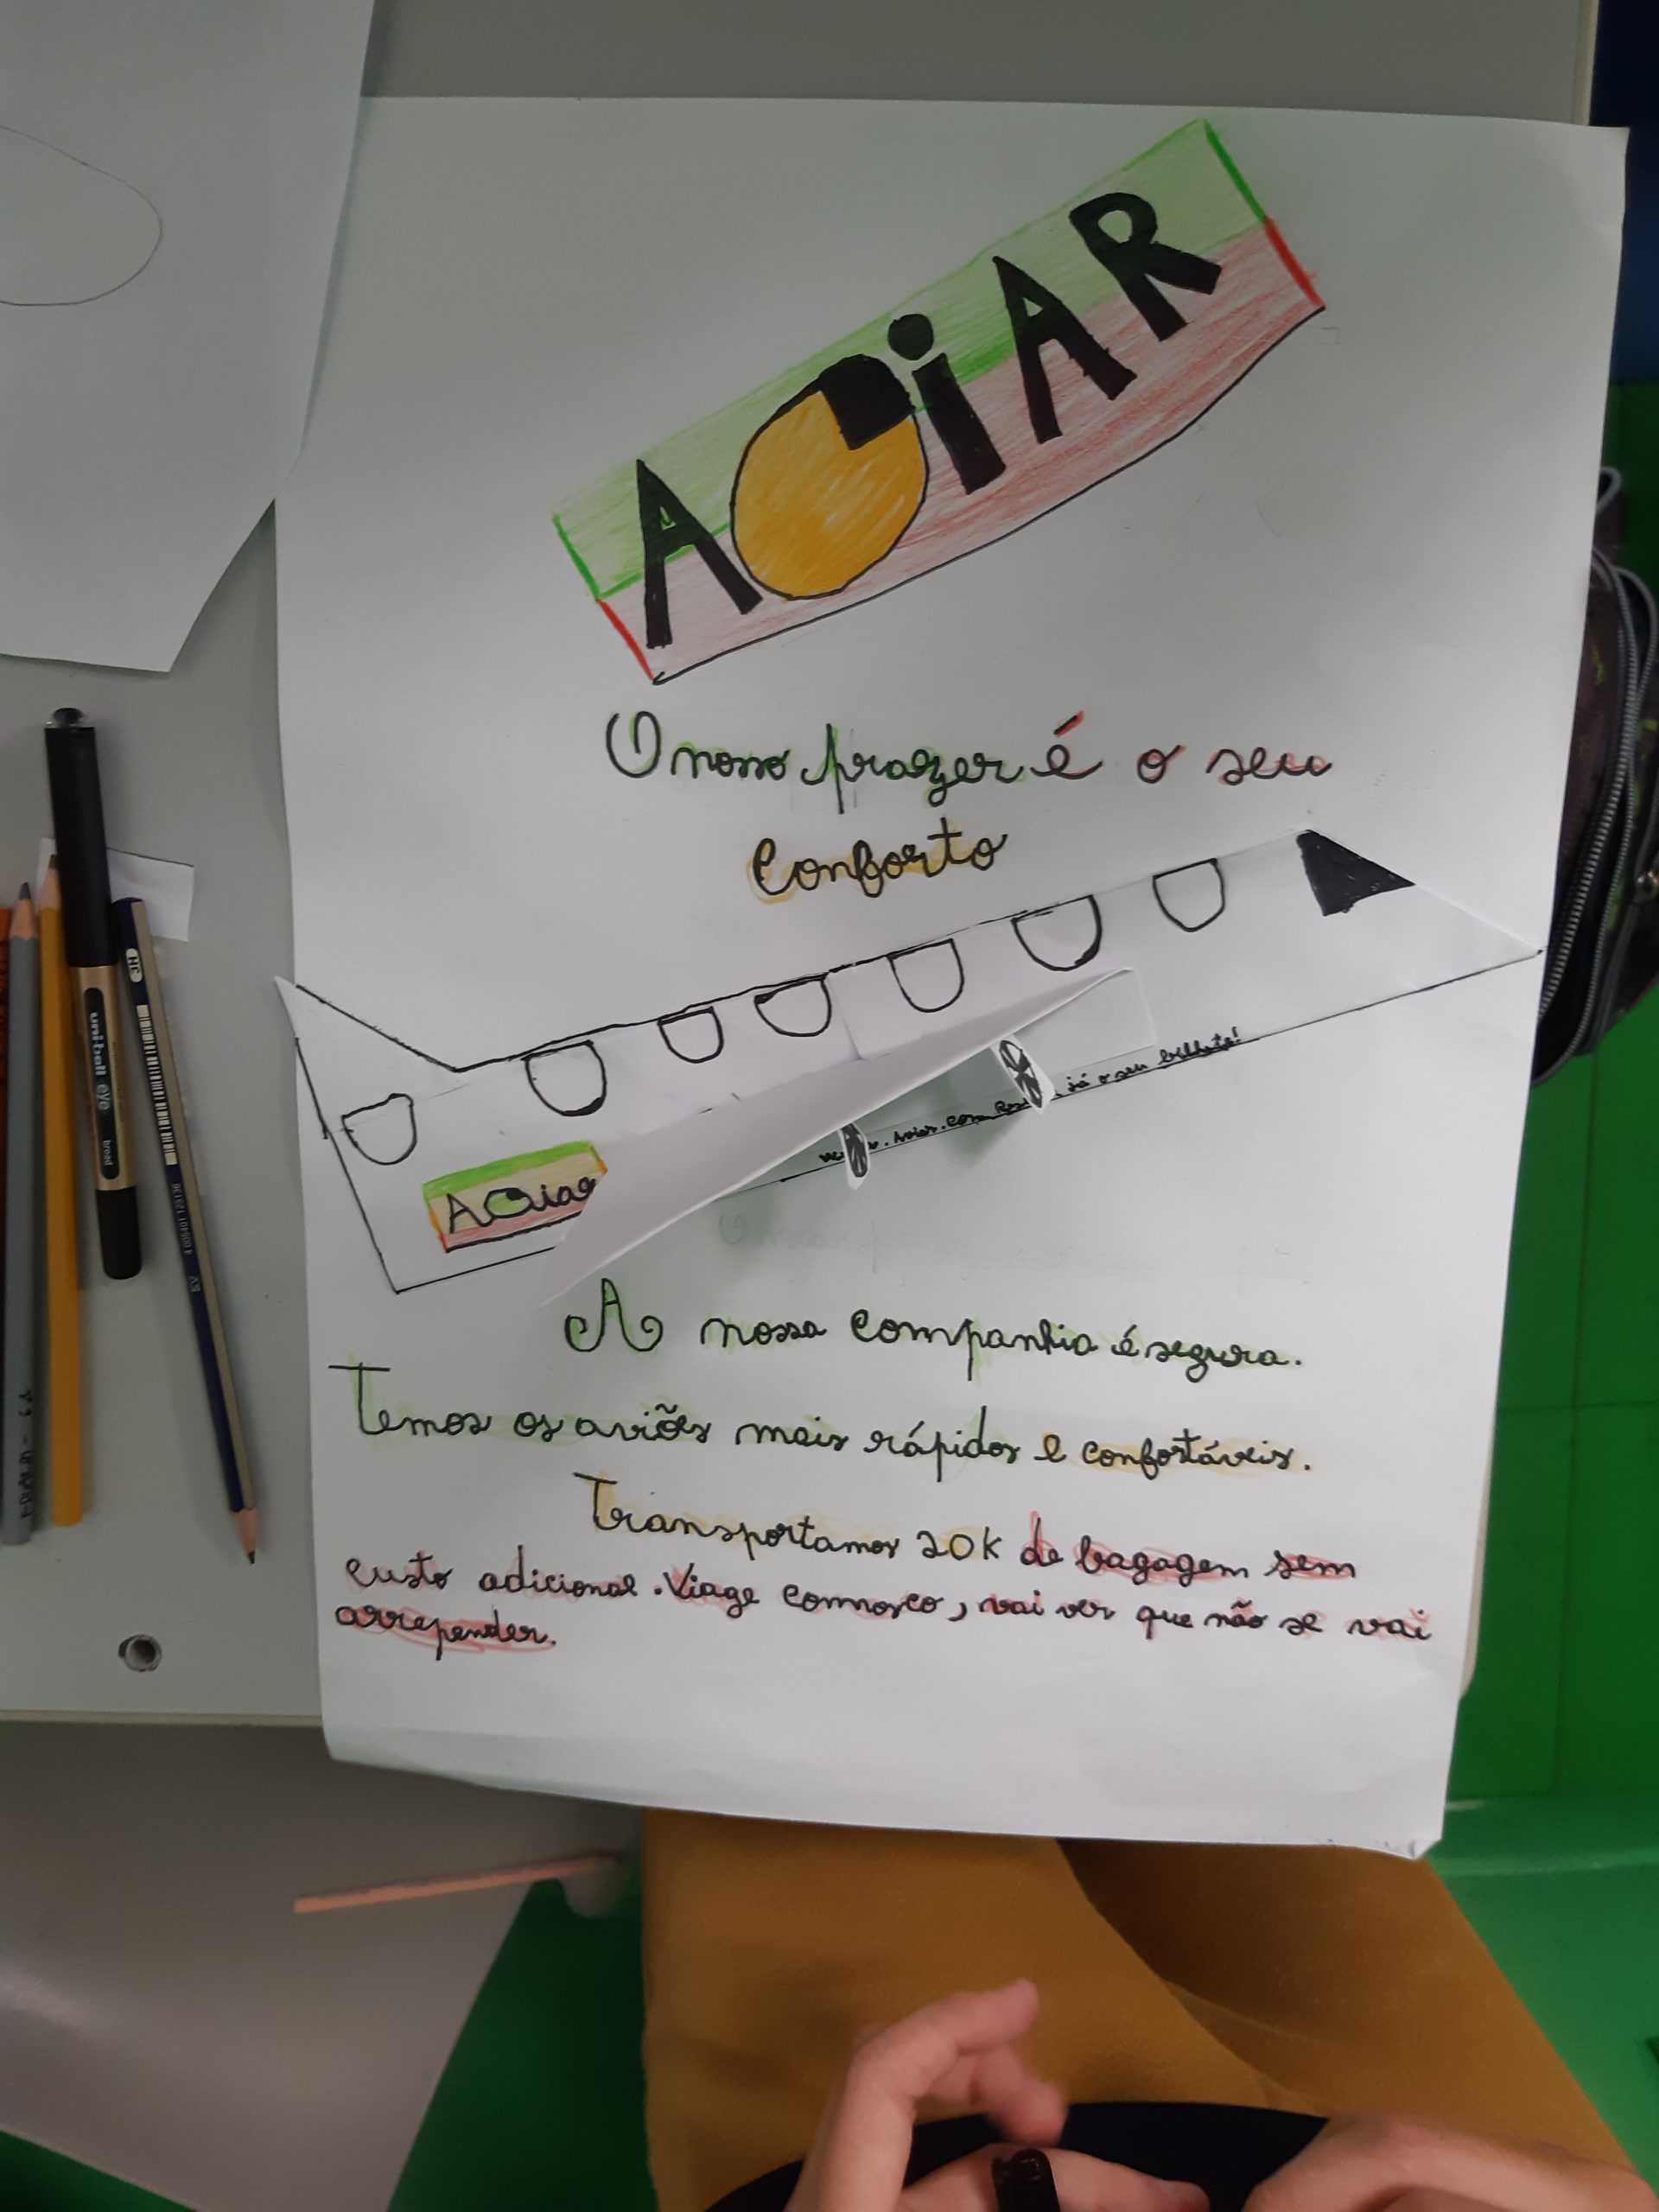 AOiAR
O nosso prazer é o seu
conforto
AOiar
. Aoiar. com já o seu bilhete!
A nossa companhia é segura.
Temos os aviões mais rápidos e confortáveis.
Transportamos 20K de bagagem sem
custo adicional. Viage connosco, vai ver que não se vai
arrepender.
uniball eye
broad
HB
4 005401 125136